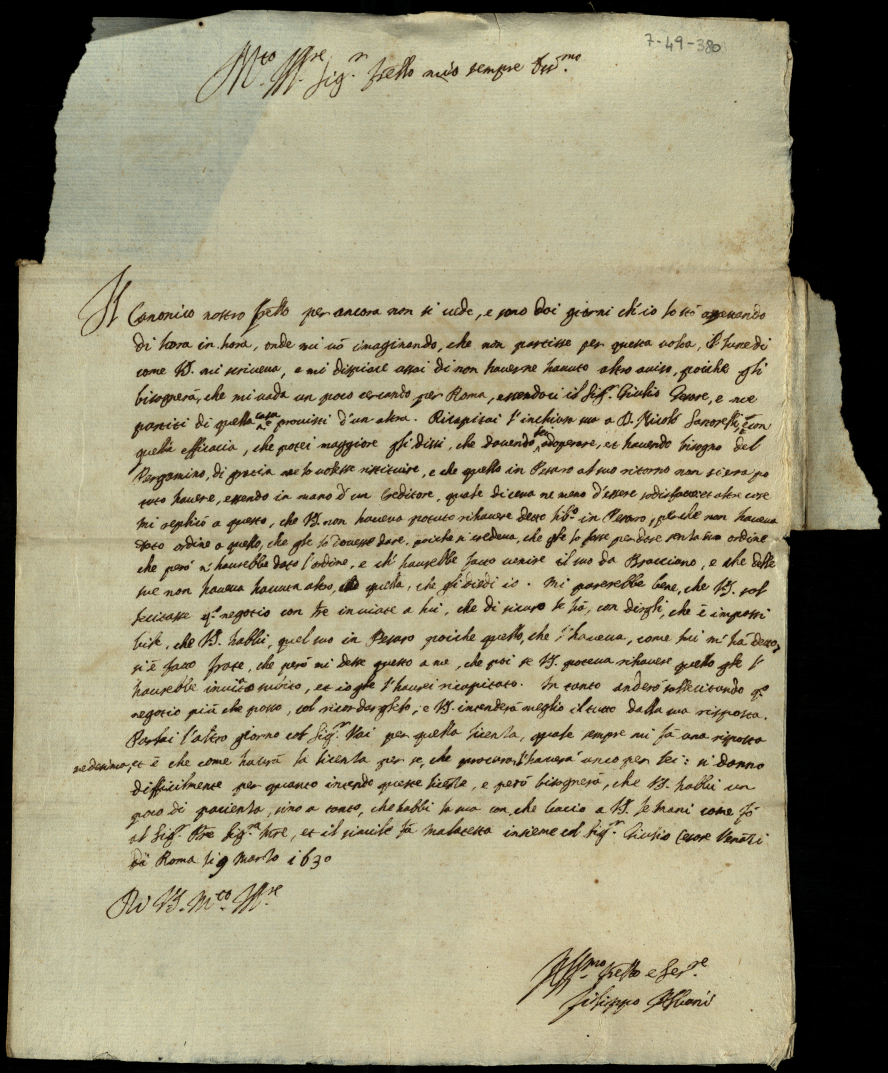 7-49-380
M.to Ill.re Sig.r fr̃ello mio sempre
Il Canonico nostro fr̃ello per ancora non si vede, e sono doi giorni ch'io lo stò aspettando
di hora in hora, onde mi vò imaginando, che non partisse per questa volta, il lunedi
come VS. mi scriveva, e mi dispiace assai di non haverne havuto altro aviso, poiche gli
bisognerà, che mi vada un poco cercando per Roma, essendoci il Sig.r Giulio Cesare, e me
partiti di quella casa e provisti d'un altra. Ricapitai l'inchiusa sua a D. Nicolò Santorelli, e con
quella efficacia, che potei maggiore gli dissi, che dovendo lei adoperare, et havendo bisogno del
Pergamino, di gratia me lo volesse restituire, e che quello in Pesaro al suo ritorno non si era po
tuto havere, essendo in mano d'un creditore, quale diceva ne meno d'essere sodisfatto et altre cose
mi replicò a questo, che VS. non haveva potuto rihavere detto lib.o in Pesaro, perche non haveva
dato ordine a quello, che gle lo dovesse dare. poiche si credeva, che gle lo fosse per dare senza suo ordine
che però n'haurebbe dato l'ordine, e ch'haurebbe fatto venire il suo da Bracciano, e che delle
sue non haveva havuta altro, che quella, che gli diedi io. Mi parerebbe bene, che VS. sol
lecitasse q.o negotio con l're inviate a lui, che di sicuro lo fà, con dirgli, che è impossi
bile, che VS. habbi, quel suo in Pesaro poiche quello, che l'haveva, come lui m'hà detto,
si è fatto frate, che però mi desse questo a me, che poi se VS. poteva rihavere quello gle l'
haurebbe inviato subito, et io gle l'haurei ricapitato. In tanto anderò sollecitando q.o
negotio più che posso, col ricordarglielo, e VS. intenderà meglio il tutto dalla sua risposta.
Parlai l'altro giorno col Sig.r Vai per quella licenza, quale sempre mi fà una risposta
medesima, et è che come haurà la licenza per se, che procurerà l'haverà anco per lei: si danno
difficilmente per quanto intendo queste licenze, e però bisognerà, che VS. habbi un
poco di pacienza, sino a tanto, che habbi la sua con, che bacio a VS. le mani come fò
al Sig.r P're Sig.ra M're, et il simile fà Malatesta insieme col Sig.r Giulio Cesare
di Roma li 9 Marzo 1630
Di VS. M.to Ill.re
fr̃ello e Ser.re
Filippo